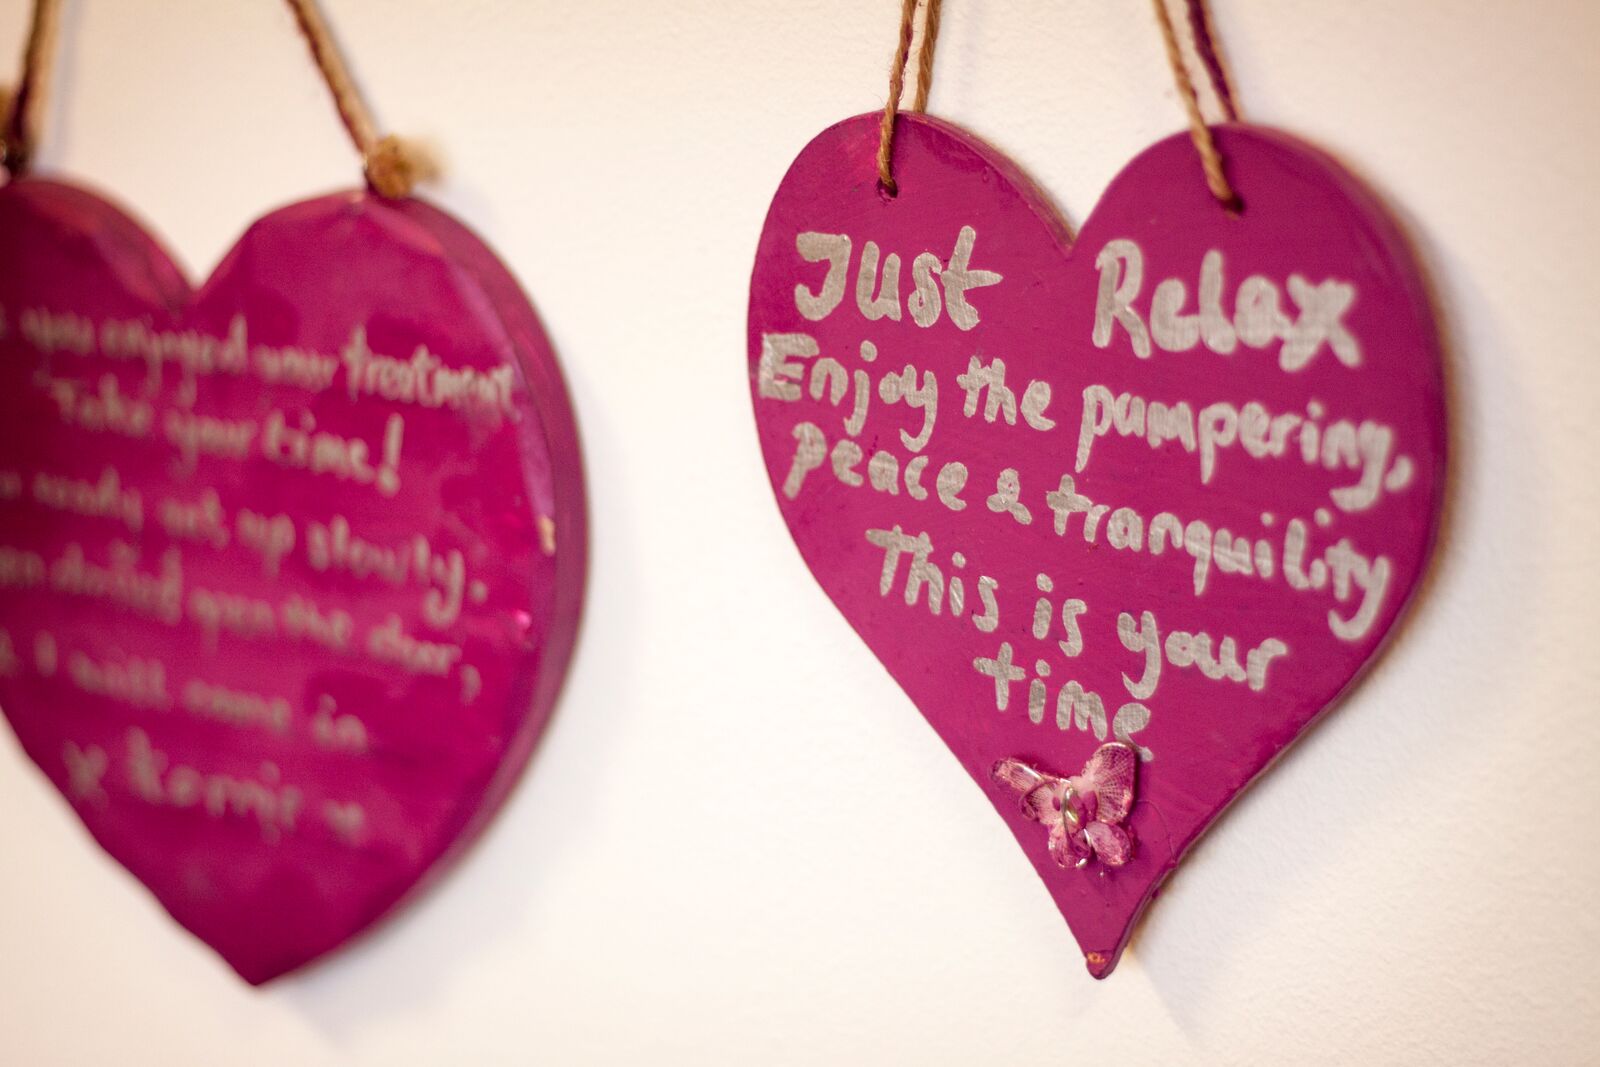 you enjoyed your treatment
Take your time!
ready get up slowly,
open the door,
I will come in
x Kerrie x
Just Relax
Enjoy the pampering,
peace & tranquility
This is your
time